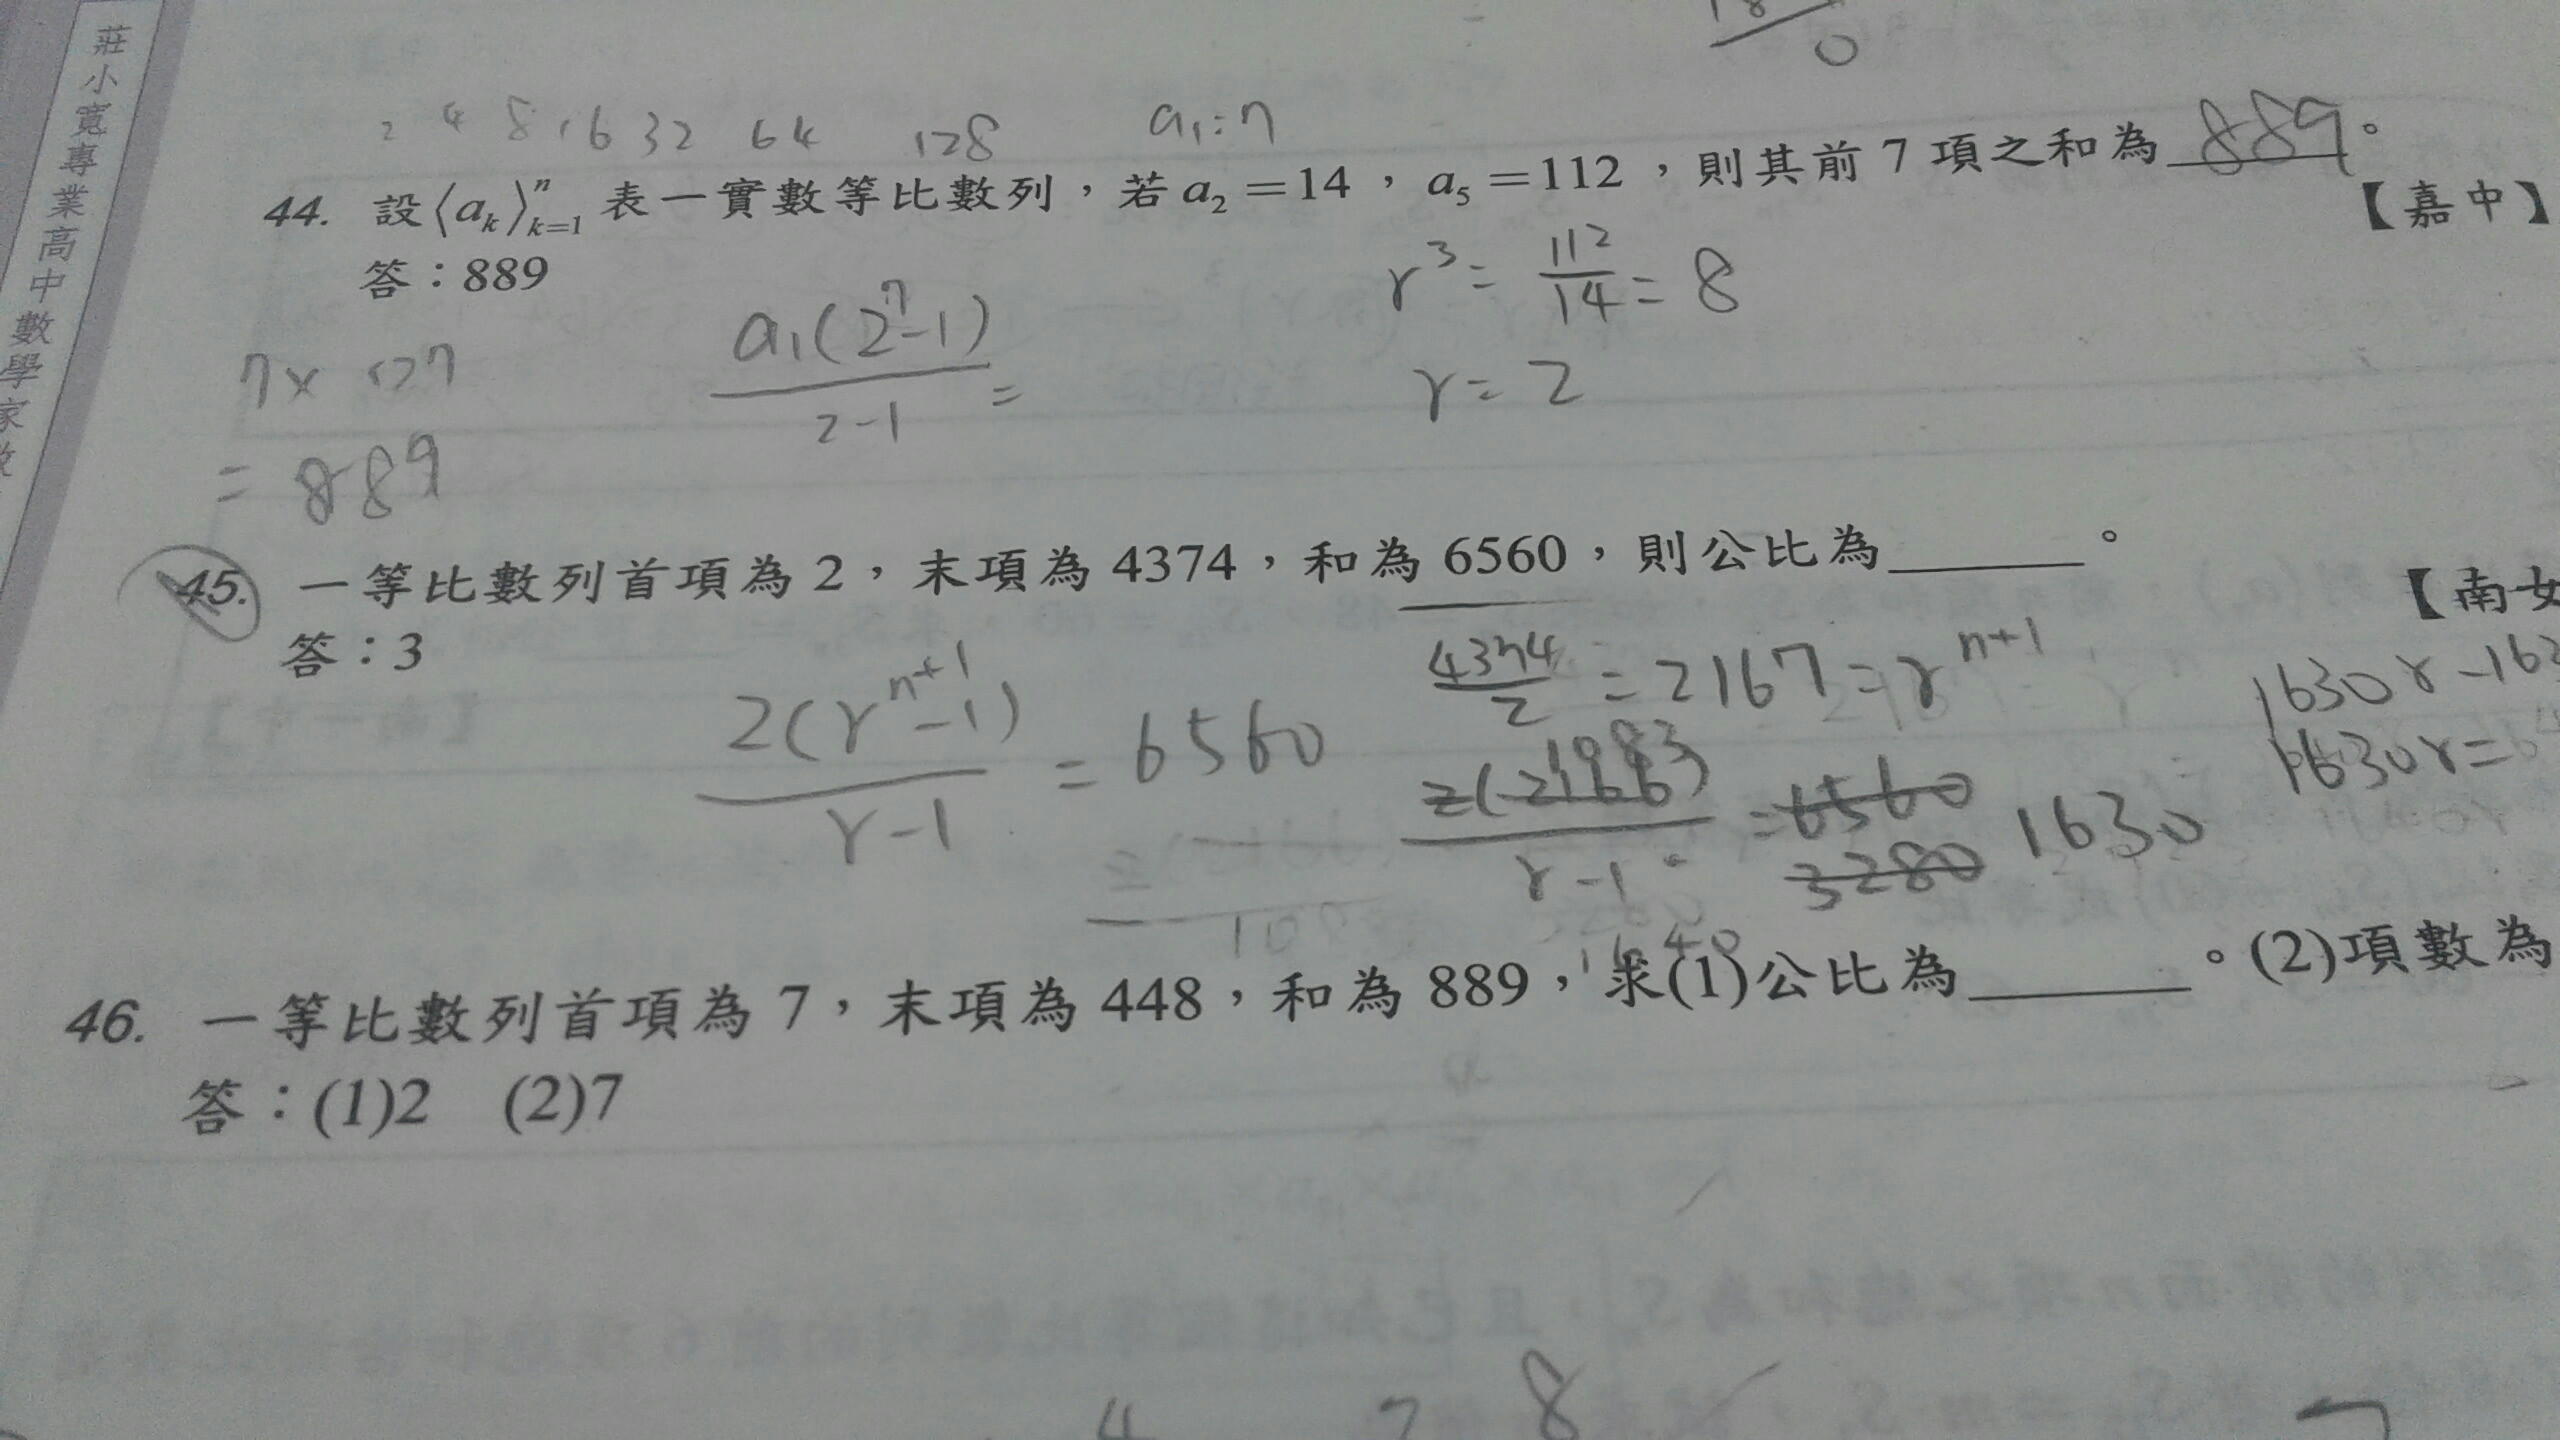 莊小寬專業高中數學家
2 4 8 16 32 64 128 a₁=7
44. 設⟨aₖ⟩ⁿₖ₌₁表一實數等比數列,若a₂=14,a₅=112,則其前7項之和為 889。
【嘉中】
答:889
r³=112/14=8
a₁(2⁷-1)/2-1=
7×127
r=2
=889
45. 一等比數列首項為2,末項為4374,和為6560,則公比為______。
【南女
答:3
4374/2=2167=rⁿ⁺¹
1630r-163
2(rⁿ⁺¹-1)/r-1=6560
1083
2(2166)/r-1=6560
3280
1630
1630r=
1640
46. 一等比數列首項為7,末項為448,和為889,求(1)公比為______。(2)項數為
答:(1)2 (2)7